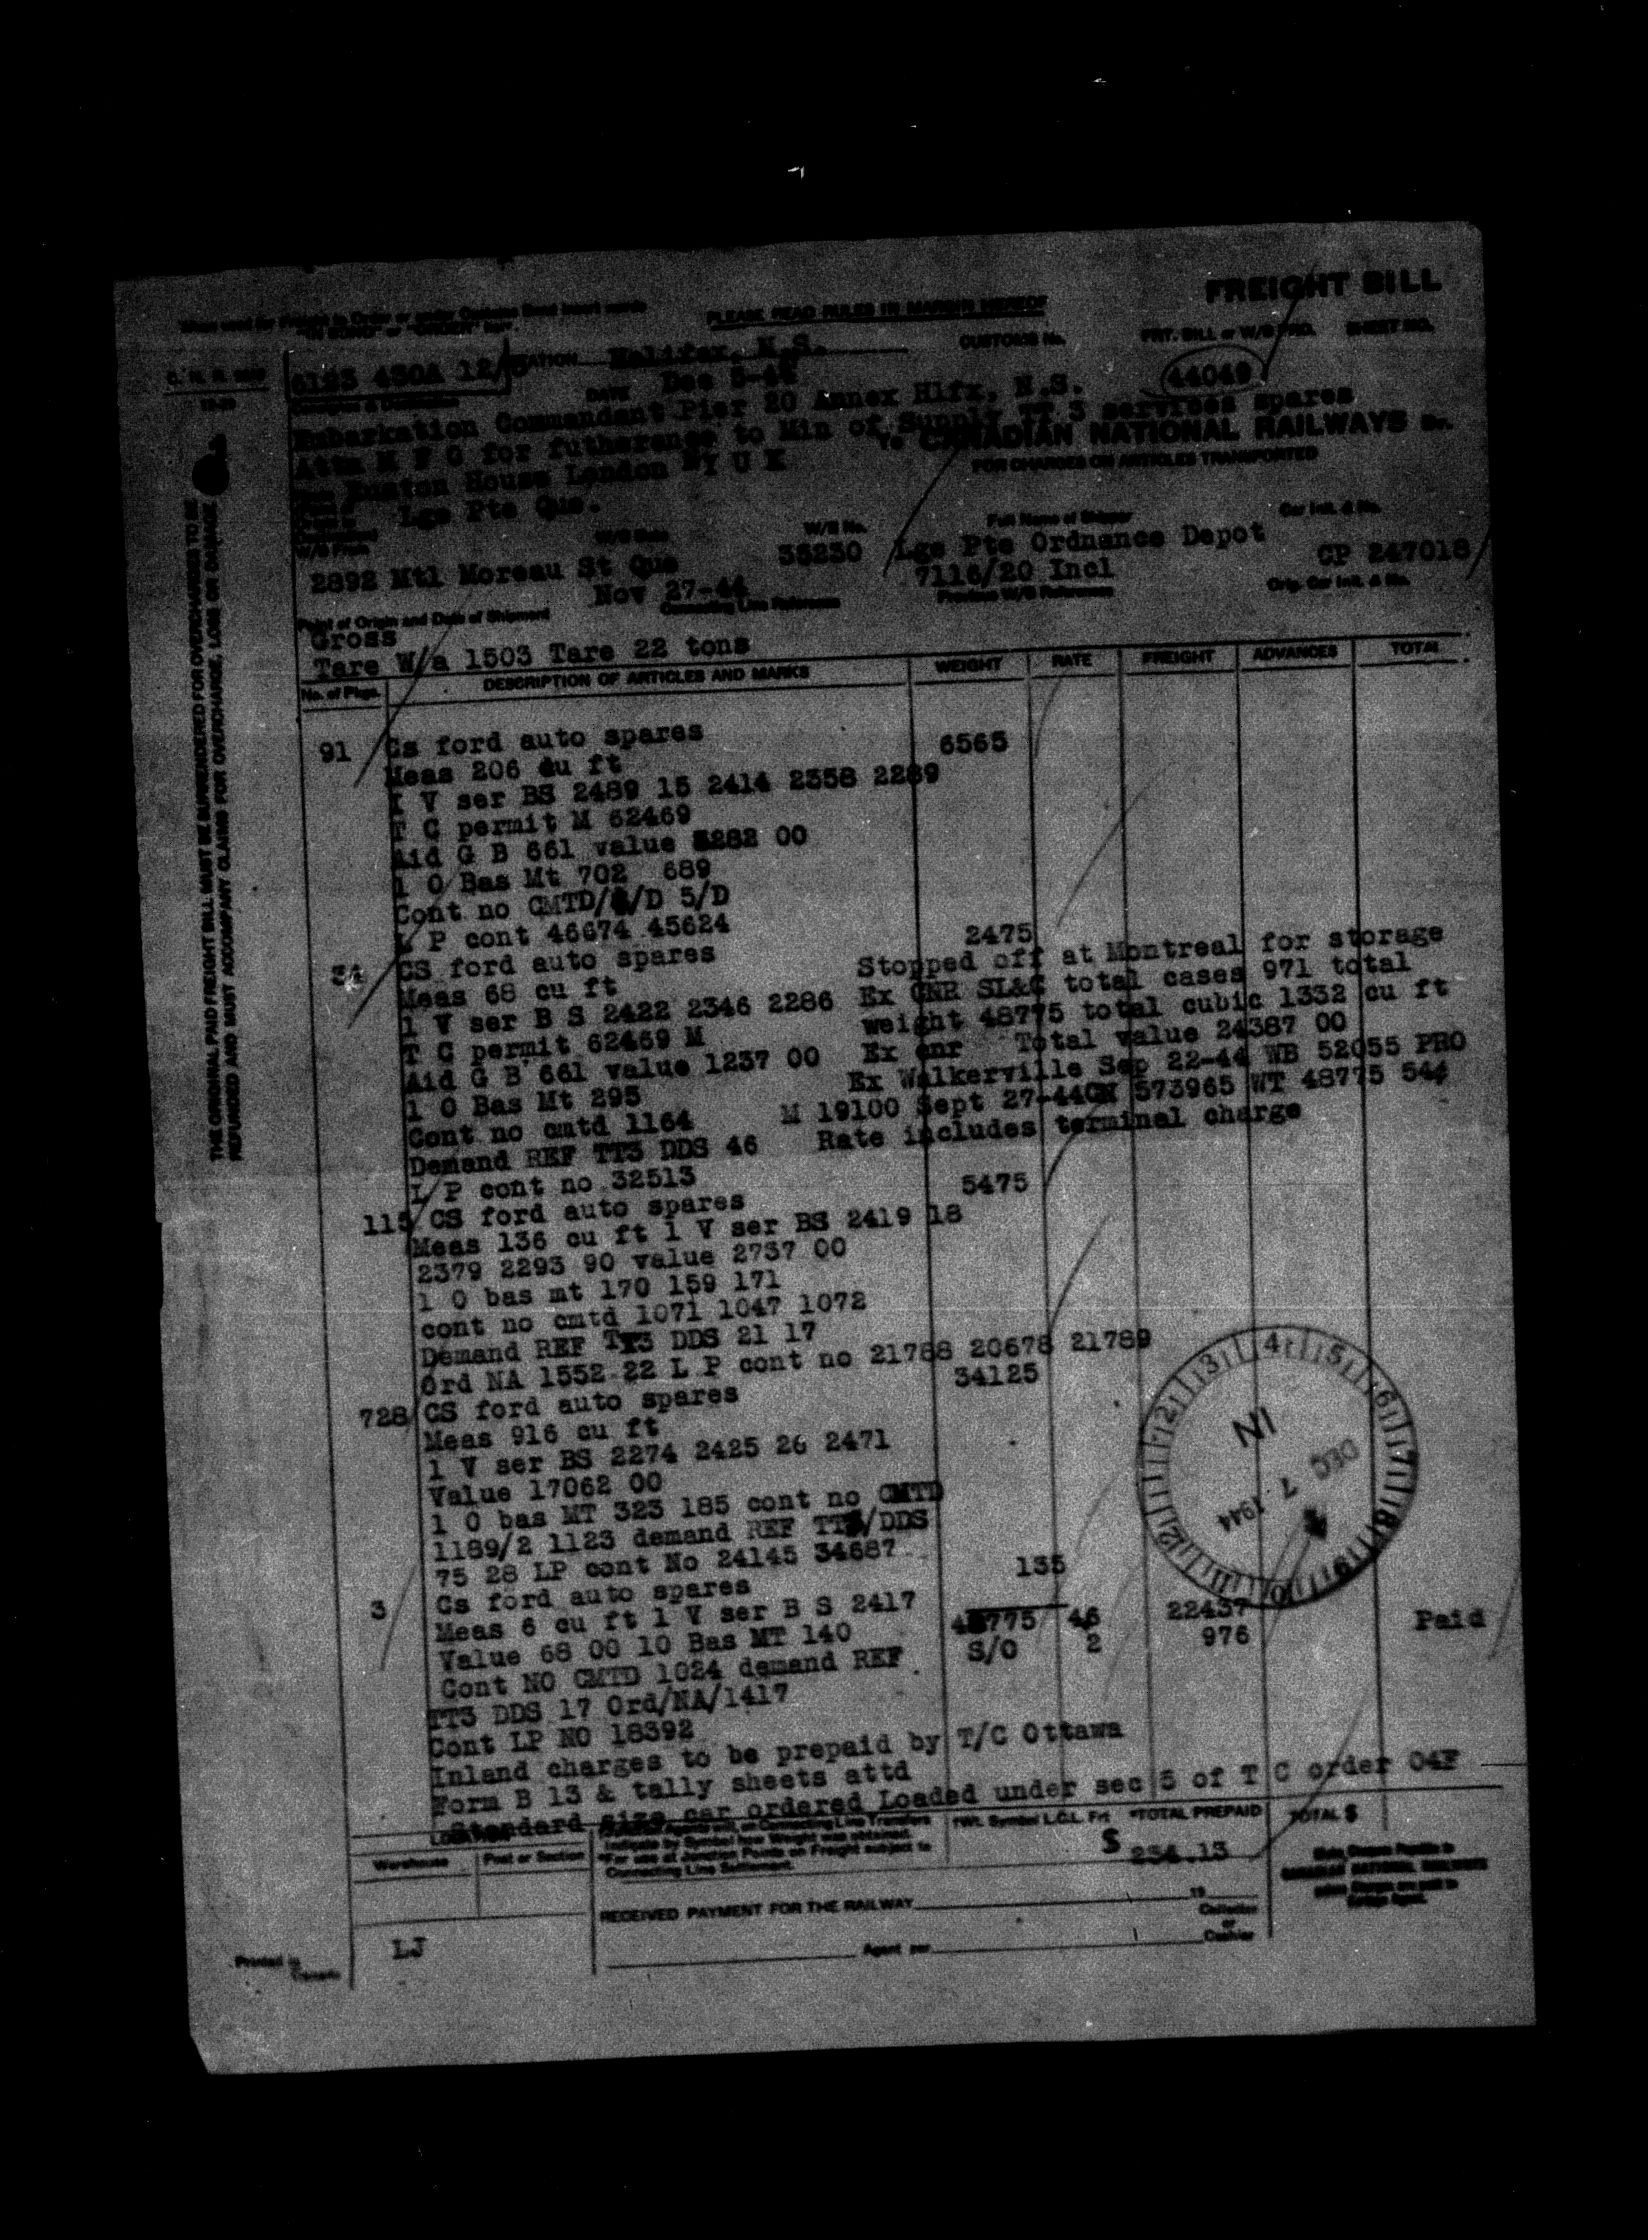 FREIGHT BILL
PLEASE READ RULES IN MARGIN HEREOF
CUSTOMS No.
FRT. BILL or W/B PRO.
SHEET NO.
6123 430A 12/
STATION Halifax, N.S.
44049
DATE Dec
Embarkation Commandant Pier 20 Annex Hlfx, N.S.
Attn M F O for futherance to Min of Supply TT 3 services spares
To CANADIAN NATIONAL RAILWAYS Dr.
FOR CHARGES ON ARTICLES TRANSPORTED
Euston House London U K
Lge Pte Que.
W/B From
W/B Date
W/B No.
Full Name of Shipper
Car Init. & No.
2892 Mtl Moreau St Que
35230
Lge Pte Ordnance Depot
CP 247018
Nov 27-44
7116/20 Incl
Point of Origin and Date of Shipment
Connecting Line Reference
Previous W/B References
Orig. Car Init. & No.
Gross
Tare W/a 1503 Tare 22 tons
No. of Pkgs.
DESCRIPTION OF ARTICLES AND MARKS
WEIGHT
RATE
FREIGHT
ADVANCES
TOTAL
91 Cs ford auto spares 6565
Meas 206 cu ft
I V ser BS 2489 15 2414 2358 2289
T C permit M 62469
Aid G B 661 value 3282 00
1 O Bas Mt 702 689
Cont no CMTD/ /D 5/D
L P cont 46674 45624
34 CS ford auto spares 2475
Meas 68 cu ft Stopped off at Montreal for storage
1 V ser B S 2422 2346 2286 Ex CNR SL&C total cases 971 total
T C permit 62469 M weight 48775 total cubic 1332 cu ft
Aid G B 661 value 1237 00 Ex cnr Total value 24387 00
1 O Bas Mt 295 Ex Walkerville Sep 22-44 WB 52055 PRO
Cont no cmtd 1164 M 19100 Sept 27-44 CN 573965 WT 48775 544
Demand REF TT3 DDS 46 Rate includes terminal charge
L P cont no 32513
115 CS ford auto spares 5475
Meas 136 cu ft 1 V ser BS 2419 18
2379 2293 90 value 2737 00
1 O bas mt 170 159 171
cont no cmtd 1071 1047 1072
Demand REF TT3 DDS 21 17
Ord NA 1552-22 L P cont no 21788 20678 21789
728 CS ford auto spares 34125
Meas 916 cu ft
1 V ser BS 2274 2425 26 2471
Value 17062 00
1 O bas MT 323 185 cont no CMTD
1189/2 1123 demand REF TT3/DDS
75 28 LP cont No 24145 34687
3 Cs ford auto spares 135
Meas 6 cu ft 1 V ser B S 2417
Value 68 00 10 Bas MT 140 48775 46 22437 Paid
Cont NO CMTD 1024 demand REF S/O 2 976
TT3 DDS 17 Ord/NA/1417
Cont LP NO 18392
Inland charges to be prepaid by T/C Ottawa
Form B 13 & tally sheets attd
Standard size car ordered Loaded under sec 5 of T C order 04F
IN
DEC 7 1944
LOCATION
Warehouse
Post or Section
*TOTAL PREPAID
TOTAL $
$ 234.13
RECEIVED PAYMENT FOR THE RAILWAY
19
Collector
or
Cashier
Agent per
LJ
Printed in
Canada
THE ORIGINAL PAID FREIGHT BILL MUST BE SURRENDERED FOR OVERCHARGES TO BE
REFUNDED AND MUST ACCOMPANY CLAIMS FOR OVERCHARGE, LOSS OR DAMAGE